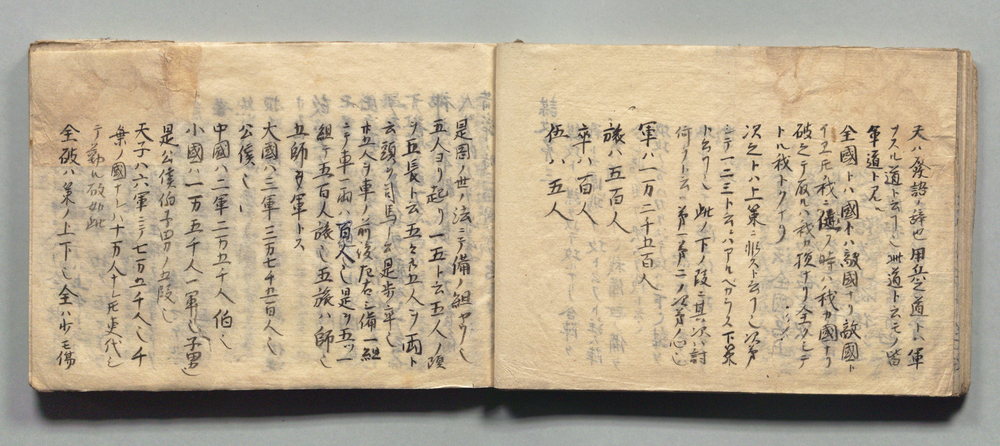 夫ハ發語ノ辞也用兵之道トハ軍
ヲスル道ト云フ也此道ト云モノ皆
軍道ト見ル
全國トハ國トハ敵國ナリ敵國ト
イヱトモ我ニ随フ時ハ我カ國ナリ
破之テ取ルハ我カ損ナリ全フシテ
トルハ我トクナリ
次之トハ上策ニ非スト云フ也次第
シテ一二三ト云ニハアルヘカラス下策
ト云フ也此ノ下ノ段ニ其次ハ討
軍ハ一万二千五百人
旅ハ五百人
卒ハ百人
伍ハ五人
是周ノ世ノ法ニテ備ノ組ヤウ也
五人ヨリ起リ一五ト云五人ノ頭
ヲ五長ト云五々廿五人ヲ両ト
云頭ヲ司馬ト云是歩立卒也
廿五人ヲ車ノ前後左右ニ備一組
ニテ車一両ハ百人也是ヲ五ツ
組テ五百人旅也五旅ハ師也
五師ヲ軍トス
大國ハ三軍三万七千五百人也
公侯也
中國ハ二軍二万五千人伯也
小國ハ一万五千人一軍也子男也
是公侯伯子男ノ五段也
天子ハ六軍ニテ七万五千人也千
乗ノ國ナレハ十万人ナレ氏更代シ
テ勤ル故如此
全破ハ策ノ上下也全ハ少モ傷